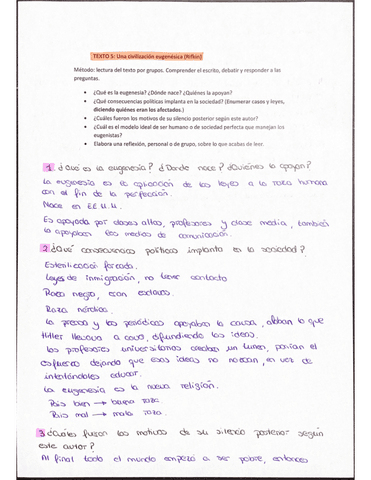 TEXTO 5: Una civilización eugenésica (Rifkin)
Método: lectura del texto por grupos. Comprender el escrito, debatir y responder a las
preguntas.
• ¿Qué es la eugenesia? ¿Dónde nace? ¿Quiénes la apoyan?
• ¿Qué consecuencias políticas implanta en la sociedad? (Enumerar casos y leyes,
diciendo quiénes eran los afectados.)
• ¿Cuáles fueron los motivos de su silencio posterior según este autor?
• ¿Cuál es el modelo ideal de ser humano o de sociedad perfecta que manejan los
eugenistas?
• Elabora una reflexión, personal o de grupo, sobre lo que acabas de leer.
1 ¿Qué es la eugenesia? ¿Donde nace? ¿Quiénes la apoyan?
La eugenesia es la aplicación de las leyes a la raza humana
con el fin de la perfección.
Nace en EE.UU.
Es apoyada por clases altas, profesores y clase media, también
la apoyaban los medios de comunicación.
2 ¿Qué consecuencias políticas implanta en la sociedad?
Esterilización forzada.
Leyes de inmigración, no tener contacto
Raza negra, eran esclavos.
Raza nórdica.
La prensa y los periódicos apoyaban la causa, alaban lo que
Hitler llevaba a cabo, difundiendo las ideas.
Los profesores universitarios creaban un lunes, ponían el
esfuerzo dejando que esas ideas no, en vez de
intentándoles educar.
La eugenesia es la nueva religión.
Bien → buena raza.
mal → mala raza.
3 ¿Cuáles fueron los motivos de su silencio posterior según
este autor?
Al final todo el mundo empezó a ser pobre, entonces